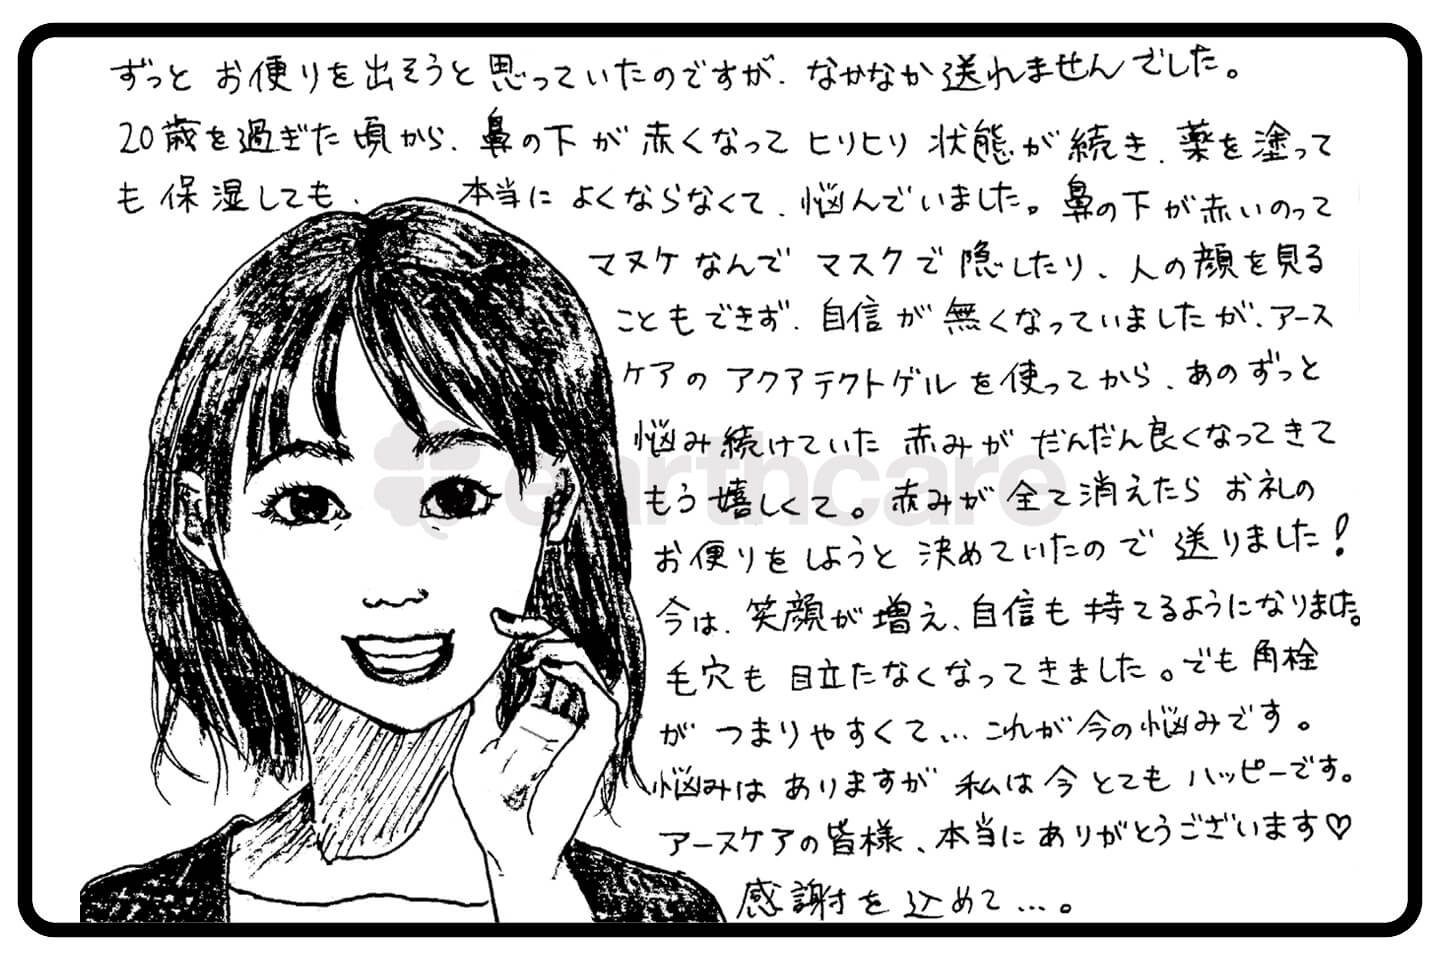 ずっと お便りを出そうと思っていたのですが、なかなか送れませんでした。
20歳を過ぎた頃から、鼻の下が赤くなってヒリヒリ状態が続き、薬を塗って
も保湿しても、本当によくならなくて、悩んでいました。鼻の下が赤いのって
マヌケなんで マスクで隠したり、人の顔を見る
こともできず、自信が無くなっていましたが、アース
ケアのアクアテクトゲルを使ってから、あのずっと
悩み続けていた赤みがだんだん良くなってきて
もう嬉しくて。赤みが全て消えたらお礼の
お便りをしようと決めていたので送りました!
今は、笑顔が増え、自信も持てるようになりました。
毛穴も目立たなくなってきました。でも角栓
がつまりやすくて…これが今の悩みです。
悩みはありますが私は今とてもハッピーです。
アースケアの皆様、本当にありがとうございます♡
感謝を込めて…。
earthcare